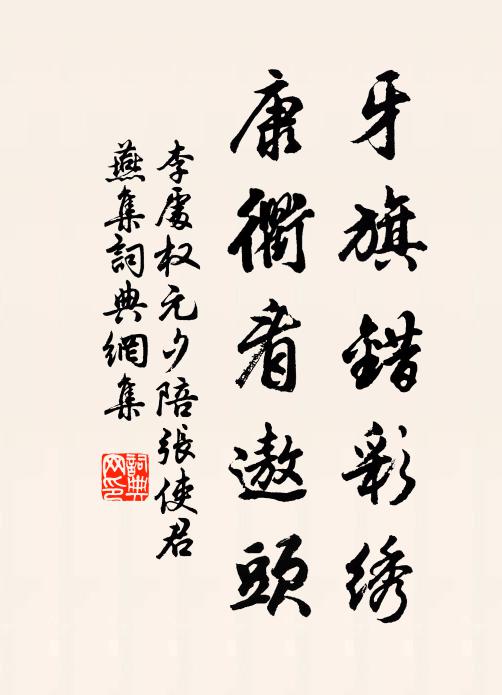 牙旗錯彩绣
康衢看遨頭
李處权元夕陪張使君
燕集詞典網集
詞典网印